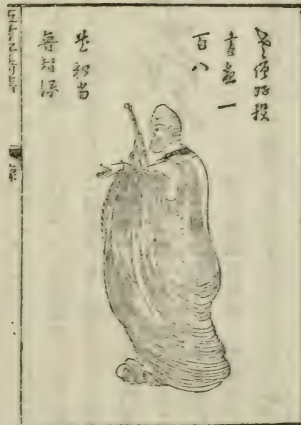 老僧好殺
晝夜一
百八
花和尚
魯智深